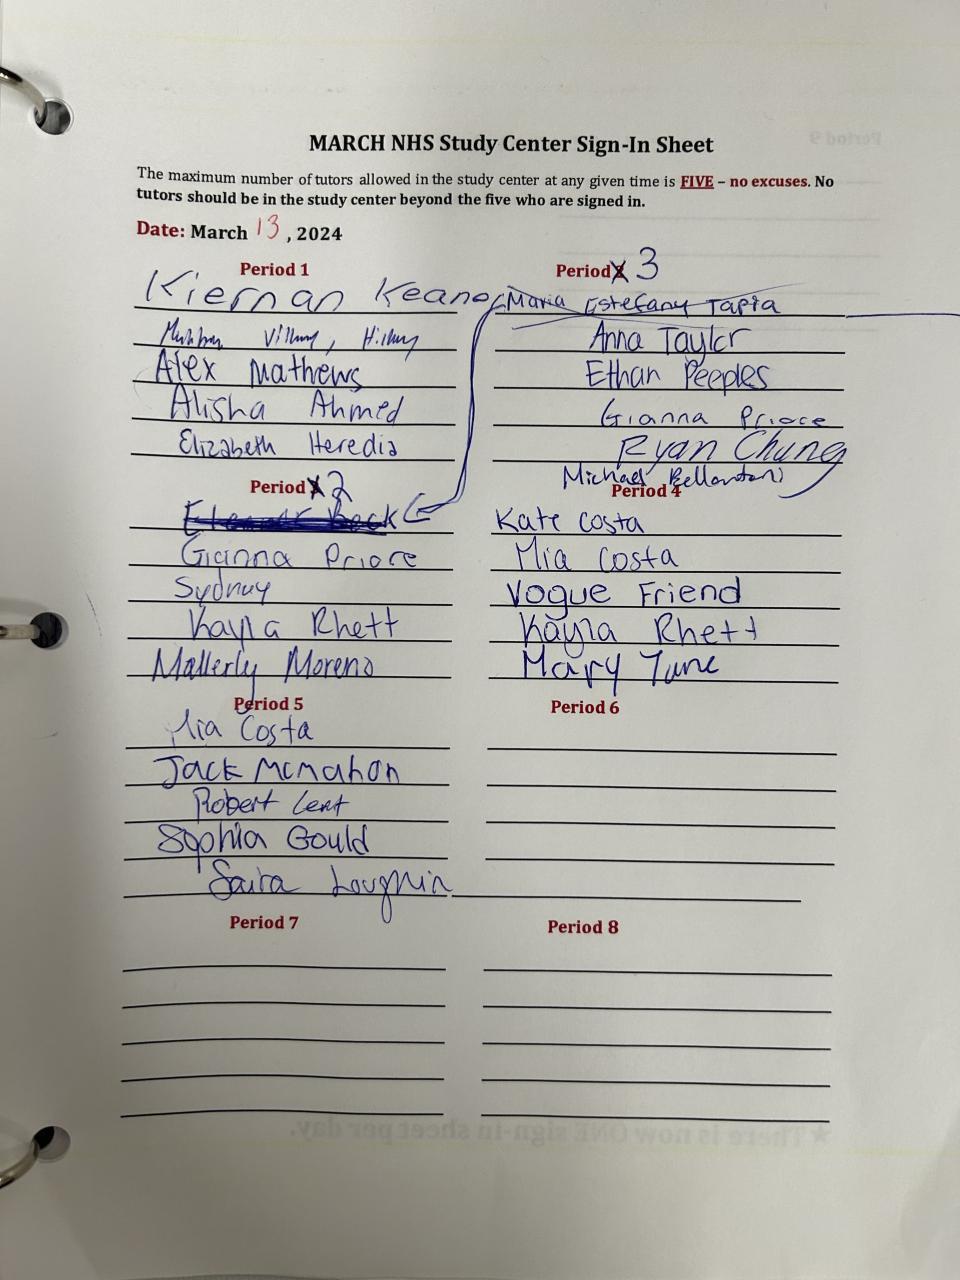 MARCH NHS Study Center Sign-In Sheet
The maximum number of tutors allowed in the study center at any given time is FIVE – no excuses. No
tutors should be in the study center beyond the five who are signed in.
Date: March 13, 2024
Period 1
Kiernan Keane
Hillary
Alex Mathews
Alisha Ahmed
Elizabeth Heredia
Period 2
Gianna Priore
Sydney
Kayla Rhett
Mallerly Moreno
Period 3
Maria Estefany Tapia
Anna Taylor
Ethan Peeples
Gianna Priore
Ryan Chung
Michael Bellantoni
Period 4
Kate Costa
Mia Costa
Vogue Friend
Kayla Rhett
Mary Tune
Period 5
Mia Costa
Jack McMahon
Robert Lent
Sophia Gould
Saira Lougnin
Period 6
Period 7
Period 8
Period 9
★There is now ONE sign-in sheet per day.